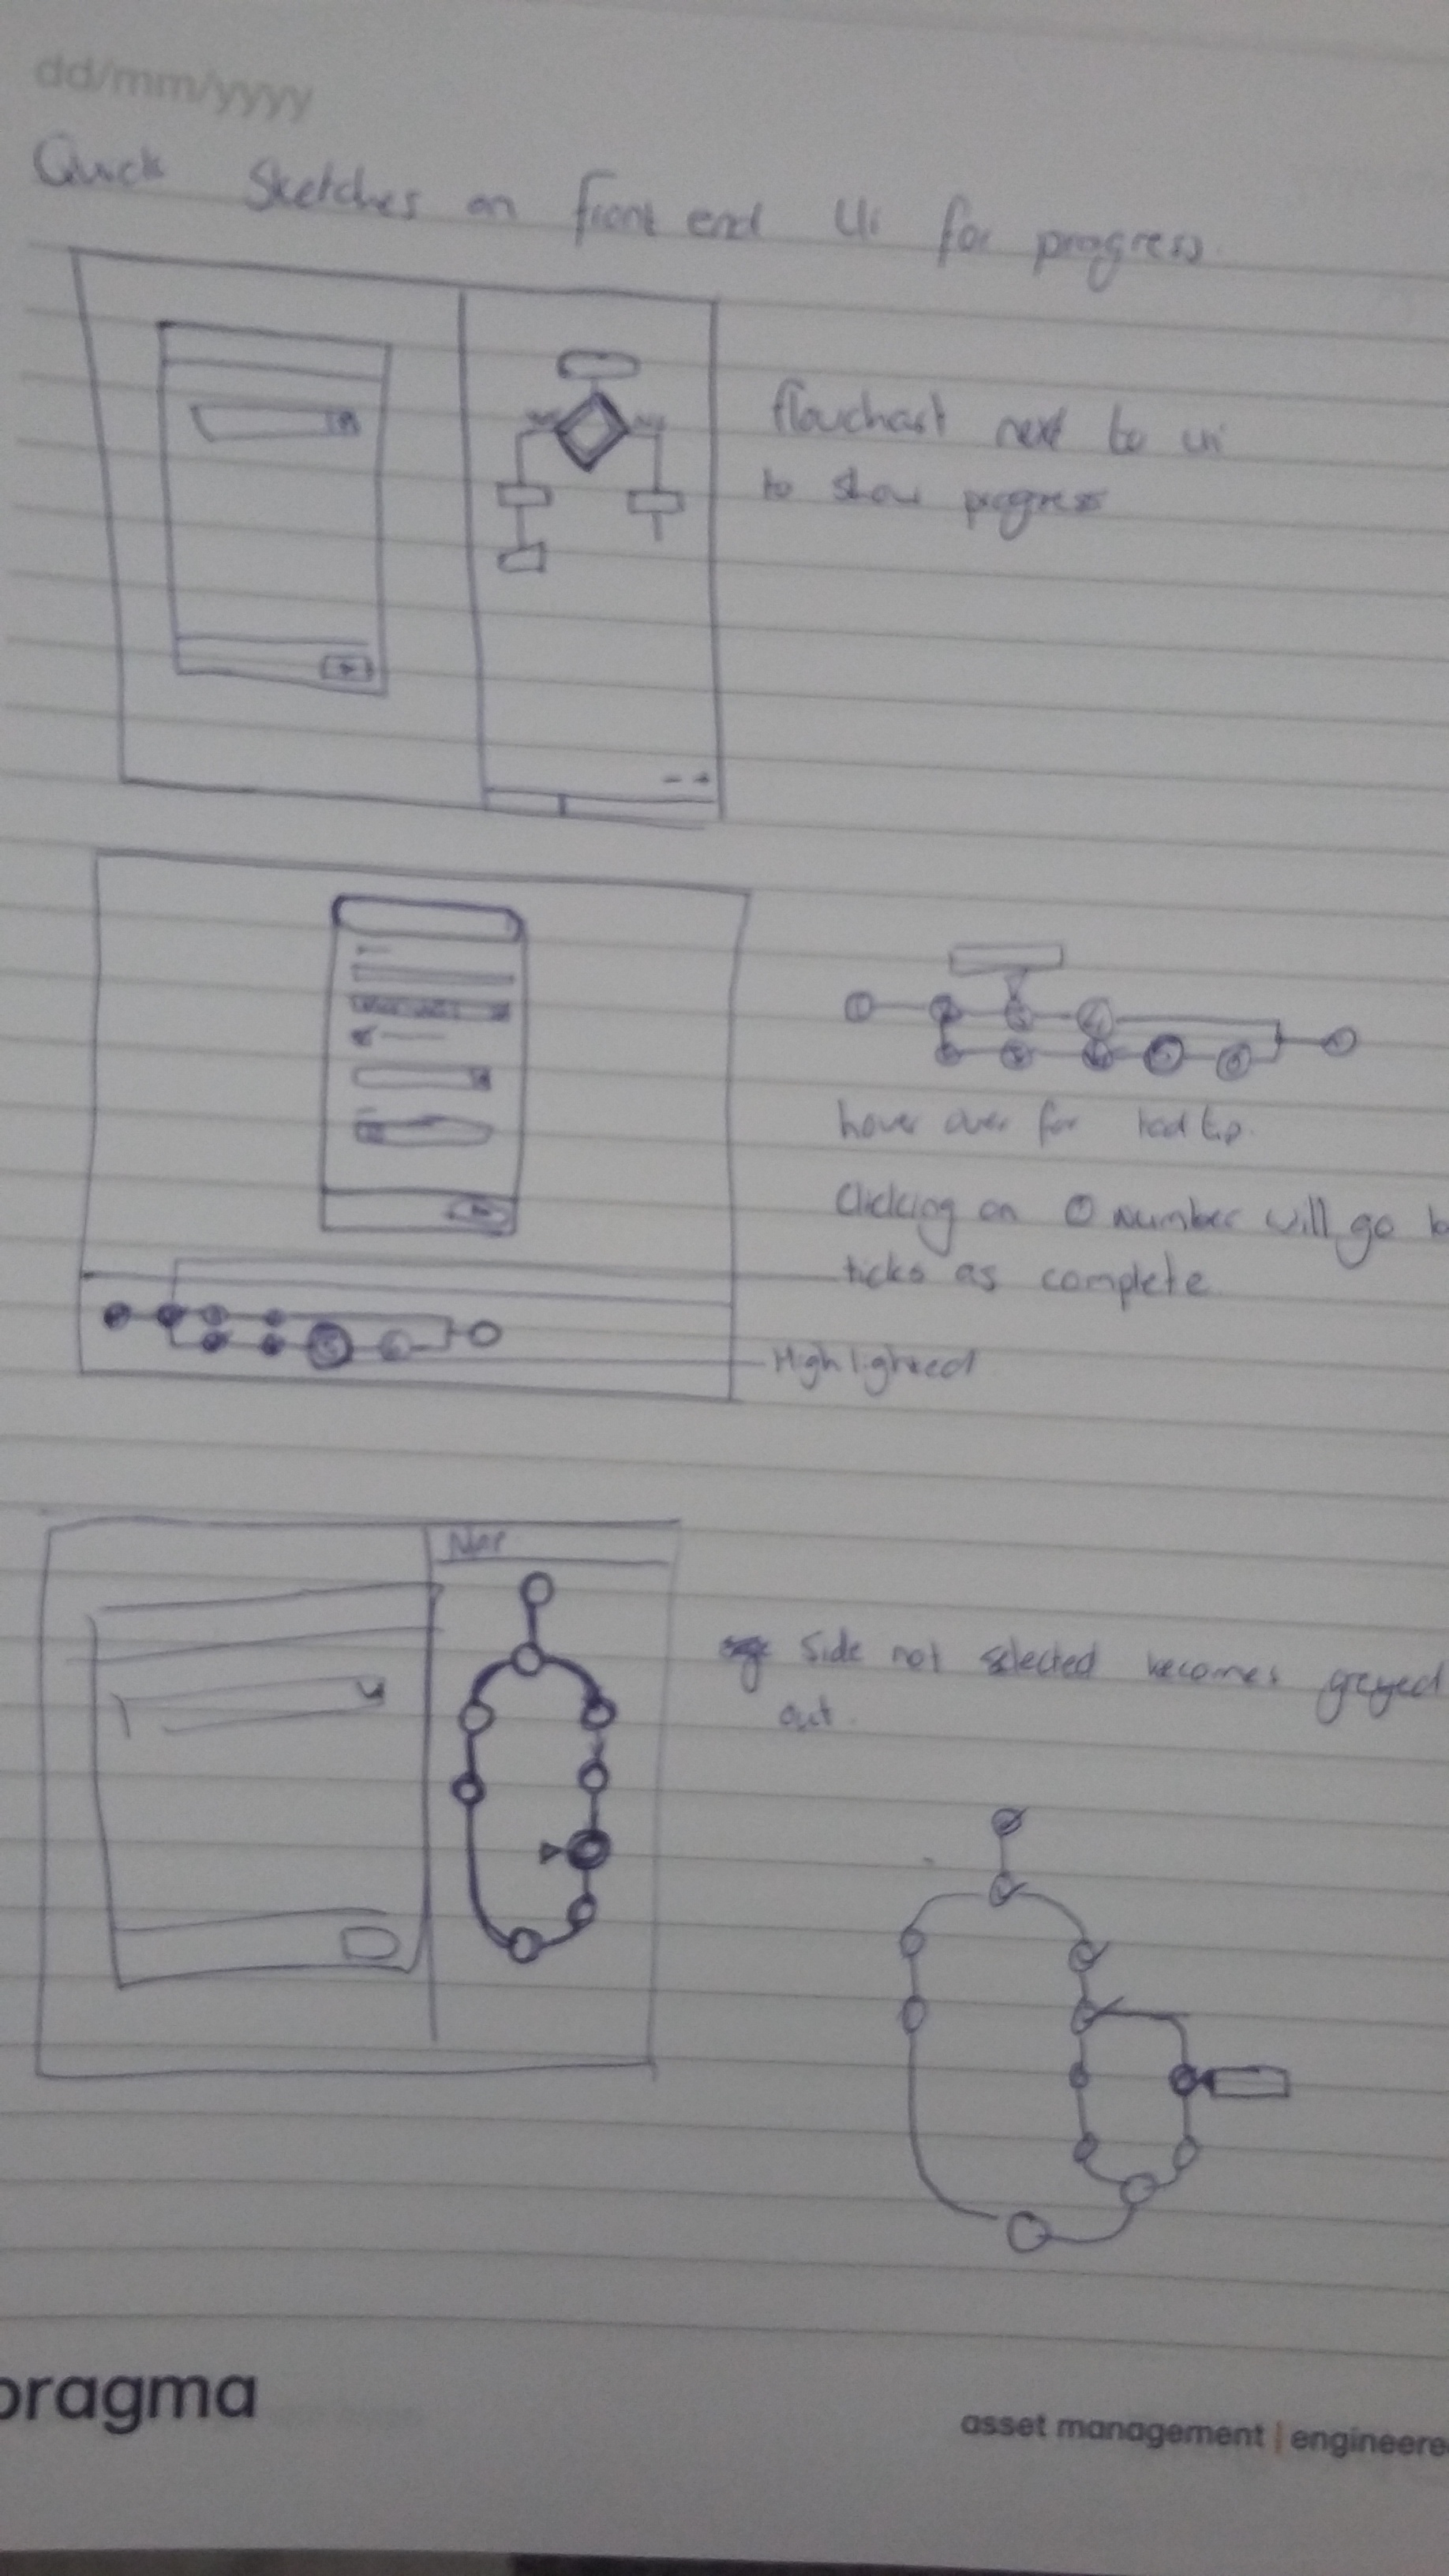 dd/mm/yyyy
Quick Sketches on front end Ui for progress.
flowchart next to ui
to show progress
hover over for tool tip.
Clicking on number will go
ticks as complete
Highlighted
Side not selected becomes greyed
out.
pragma
asset management | engineere